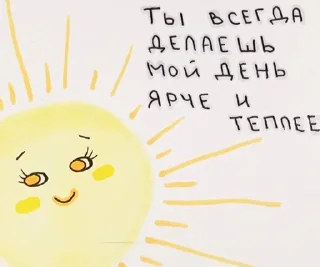 Ты ВСЕГДА
ДЕЛАЕШЬ
МОЙ ДЕНЬ
ЯРЧЕ И
ТЕПЛЕЕ